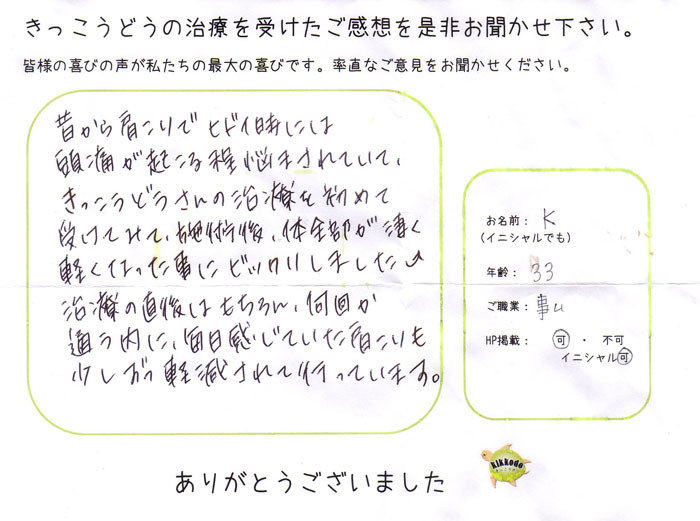 きっこうどうの治療を受けたご感想を是非お聞かせ下さい。
皆様の喜びの声が私たちの最大の喜びです。率直なご意見をお聞かせください。
昔から肩こりでヒドイ時には
頭痛が起こる程悩まされていて、
きっこうどうさんの治療を初めて
受けてみて、施術後、体全部が凄く
軽くなった事にビックリしました
治療の直後はもちろん、何回か
通う内に、毎日感じていた肩こりも
少しずつ軽減されて行っています。
お名前： K
(イニシャルでも)
年齢： 33
ご職業： 事ム
HP掲載： 可 ・ 不可
イニシャル可
kikkodo
ありがとうございました